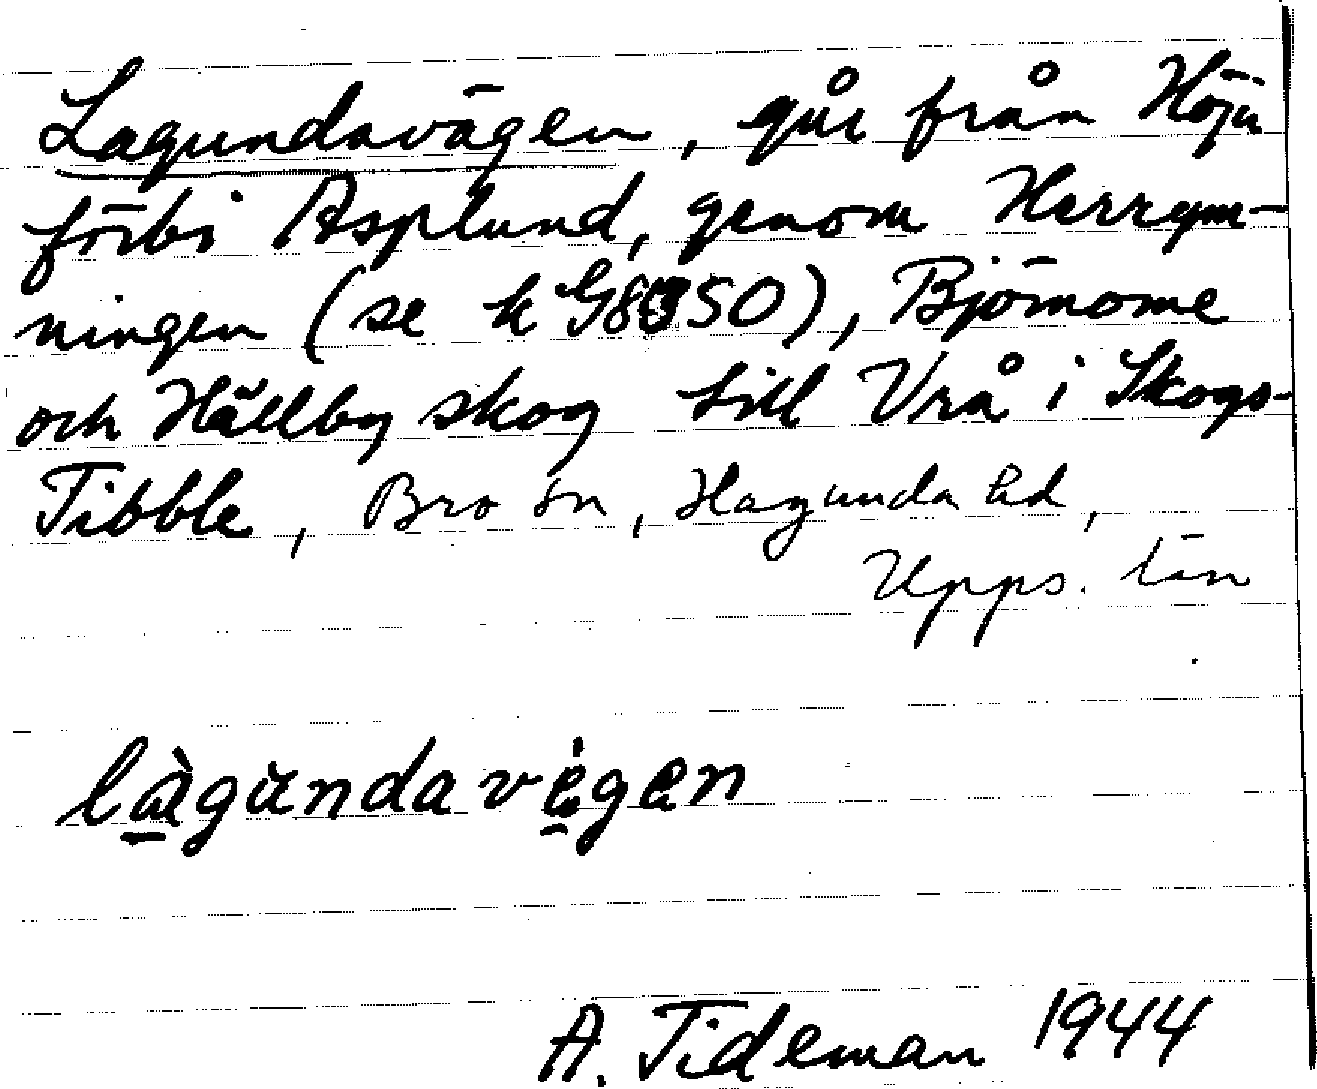 Lagundavägen, går från Höja
förbi Asplund, genom Herrym-
ningen (se k G8350), Björnome
och Hällby skog till Vrå i Skogs-
Tibble, Bro sn, Hagunda hd,
Upps. län
làgùndavègen
A. Tideman 1944